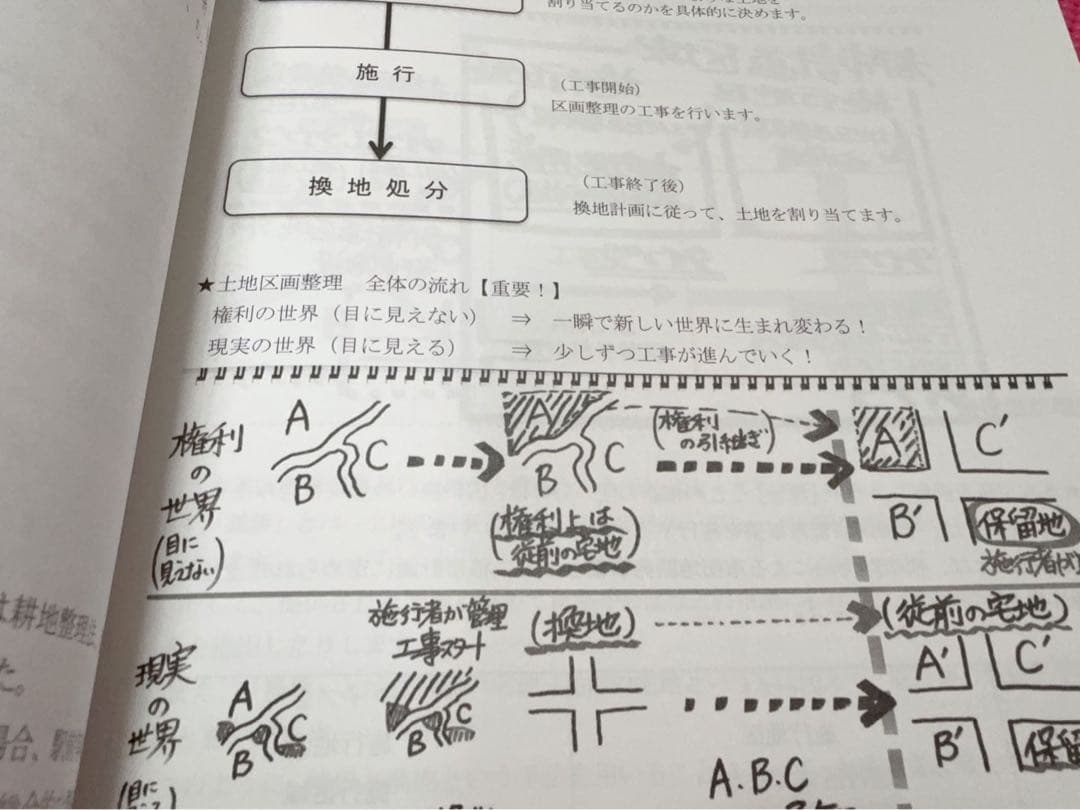 割り当てるのかを具体的に決めます。
施 行
(工事開始)
区画整理の工事を行います。
換 地 処 分
(工事終了後)
換地計画に従って、土地を割り当てます。
★土地区画整理 全体の流れ【重要！】
権利の世界（目に見えない） ⇒ 一瞬で新しい世界に生まれ変わる！
現実の世界（目に見える） ⇒ 少しずつ工事が進んでいく！
権利の世界
(目に見えない)
A B C
A B C
(権利上は
従前の宅地)
(権利の引継ぎ)
A' C'
B' 保留地
施行者が
現実の世界
(目に
A B C
施行者が管理
工事スタート
A B C
(換地)
A.B.C
(従前の宅地)
A' C'
B' 保留
耕地整理
た。
場合、